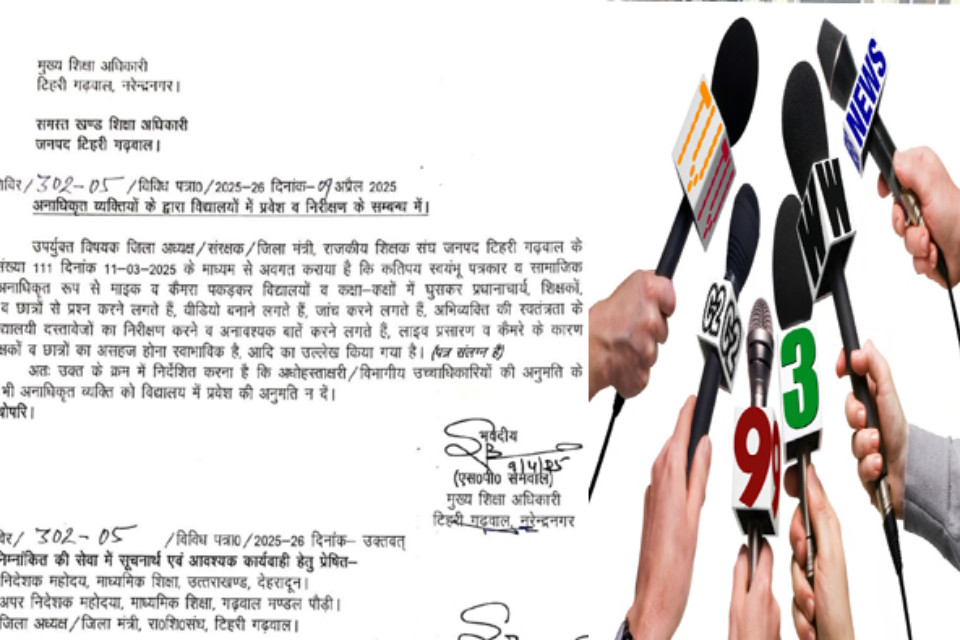 मुख्य शिक्षा अधिकारी
टिहरी गढ़वाल, नरेन्द्रनगर।
समस्त खण्ड शिक्षा अधिकारी
जनपद टिहरी गढ़वाल।
विर/302-05 /विविध पत्रा0/2025-26 दिनांक-09 अप्रैल 2025
अनाधिकृत व्यक्तियों के द्वारा विद्यालयों में प्रवेश व निरीक्षण के सम्बन्ध में।
उपर्युक्त विषयक जिला अध्यक्ष/संरक्षक/जिला मंत्री, राजकीय शिक्षक संघ जनपद टिहरी गढ़वाल के
संख्या 111 दिनांक 11-03-2025 के माध्यम से अवगत कराया है कि कतिपय स्वयंभू पत्रकार व सामाजिक
अनाधिकृत रूप से माइक व कैमरा पकड़कर विद्यालयों व कक्षा-कक्षों में घुसकर प्रधानाचार्य, शिक्षकों,
व छात्रों से प्रश्न करने लगते हैं, वीडियो बनाने लगते हैं, जांच करने लगते हैं, अभिव्यक्ति की स्वतंत्रता के
द्यालयी दस्तावेजों का निरीक्षण करने व अनावश्यक बातें करने लगते हैं, लाइव प्रसारण व कैमरे के कारण
क्षकों व छात्रों का असहज होना स्वाभाविक है, आदि का उल्लेख किया गया है। (पत्र संलग्न है)
अतः उक्त के क्रम में निर्देशित करना है कि अधोहस्ताक्षरी/विभागीय उच्चाधिकारियों की अनुमति के
भी अनाधिकृत व्यक्ति को विद्यालय में प्रवेश की अनुमति न दें।
वोपरि।
भवदीय
9/4/25
(एस0पी0 सेमवाल)
मुख्य शिक्षा अधिकारी
टिहरी गढ़वाल, नरेन्द्रनगर
विर/ 302-05 /विविध पत्रा0/2025-26 दिनांक- उक्तवत्
निम्नांकित की सेवा में सूचनार्थ एवं आवश्यक कार्यवाही हेतु प्रेषित-
निदेशक महोदय, माध्यमिक शिक्षा, उत्तराखण्ड, देहरादून।
अपर निदेशक महोदया, माध्यमिक शिक्षा, गढ़वाल मण्डल पौड़ी।
जिला अध्यक्ष/जिला मंत्री, रा0शि0संघ, टिहरी गढ़वाल।
NEWS
W W
G2 G2
3
9 9